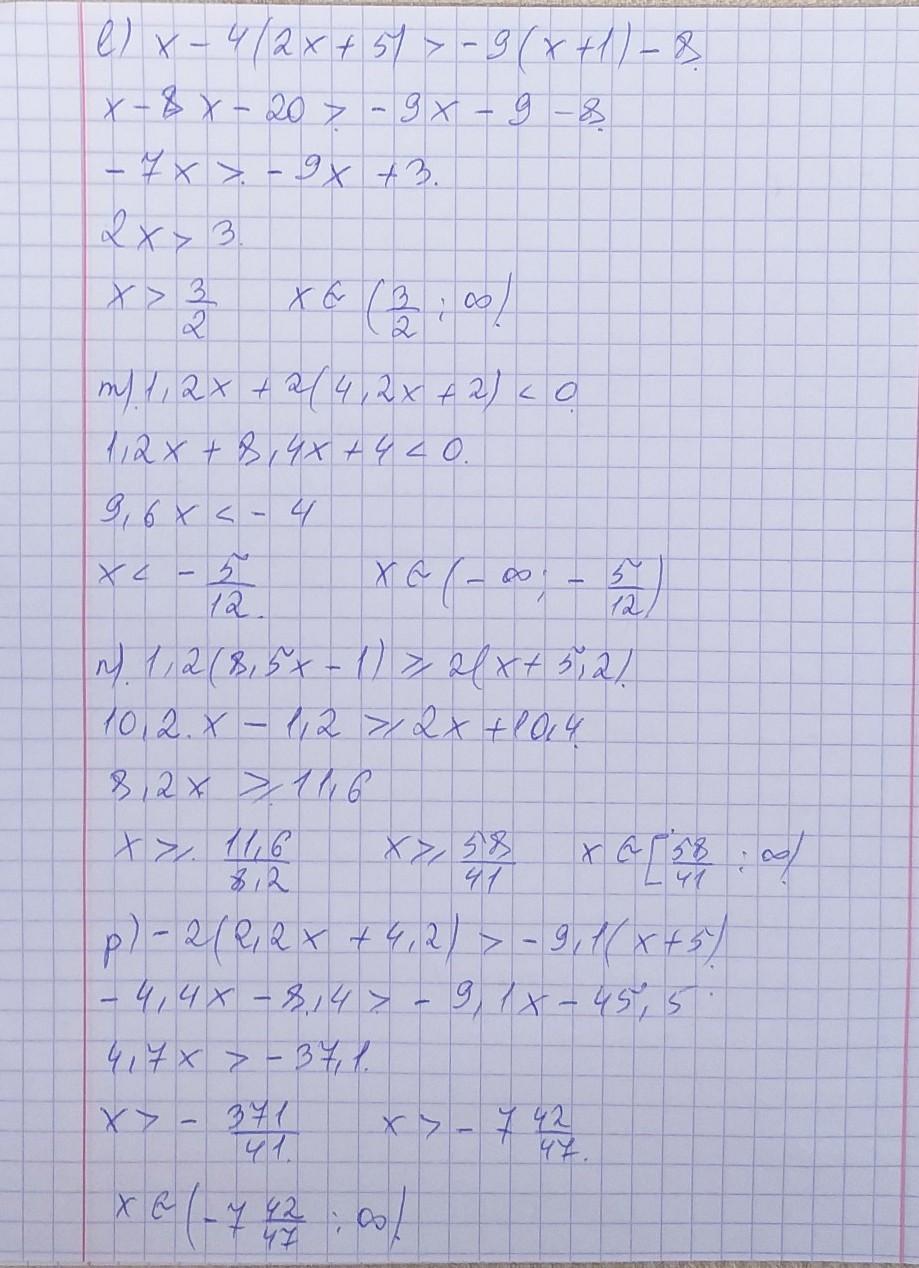 е) x - 4(2x + 5) > -9(x + 1) - 8
x - 8x - 20 > -9x - 9 - 8
-7x > -9x + 3.
2x > 3.
x > 3/2 x ∈ (3/2 ; ∞)
т) 1,2x + 2(4,2x + 2) < 0
1,2x + 8,4x + 4 < 0.
9,6x < -4
x < - 5/12. x ∈ (-∞; - 5/12)
п) 1,2(8,5x - 1) ≥ 2(x + 5,2)
10,2x - 1,2 ≥ 2x + 10,4
8,2x ≥ 11,6
x ≥ 11,6/8,2 x ≥ 58/41 x ∈ [58/41 ; ∞)
р) -2(2,2x + 4,2) > -9,1(x + 5)
-4,4x - 8,4 > -9,1x - 45,5
4,7x > -37,1.
x > - 371/41. x > -7 42/47.
x ∈ (-7 42/47 ; ∞)